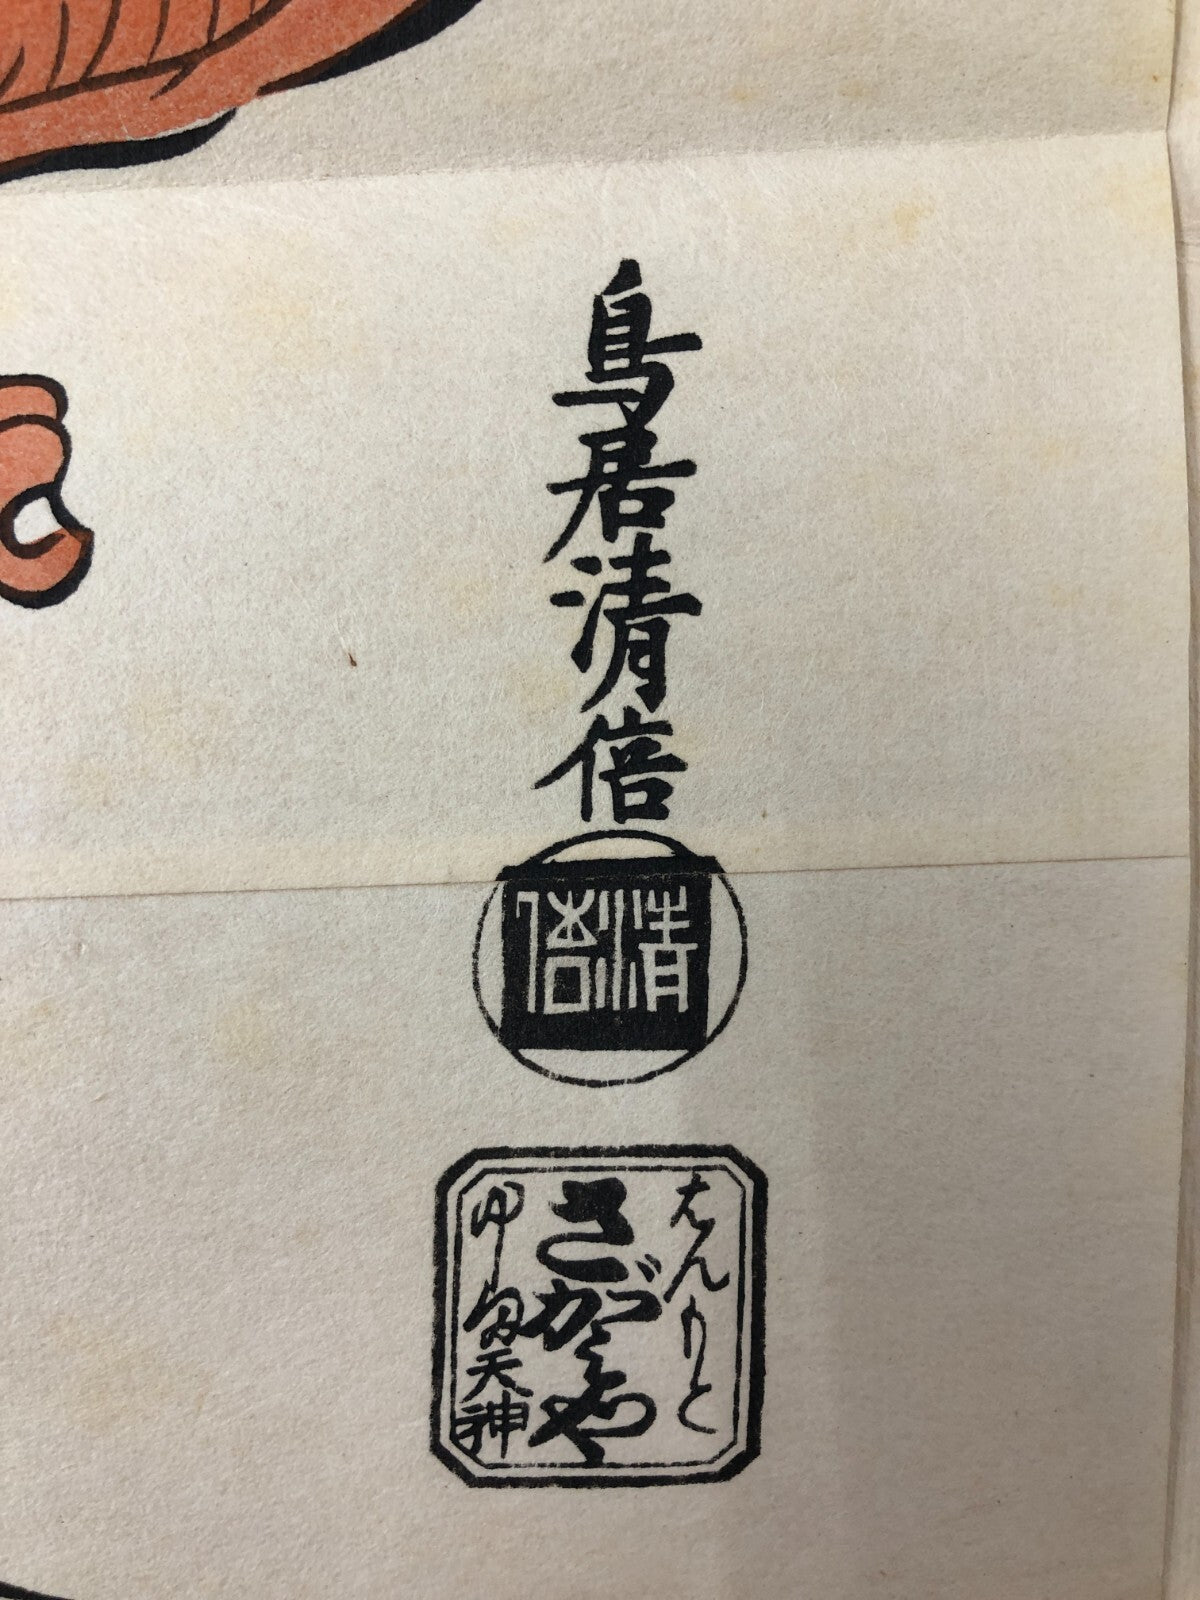 鳥居清倍
清倍
はんもと
さがみや
ゆしま天神